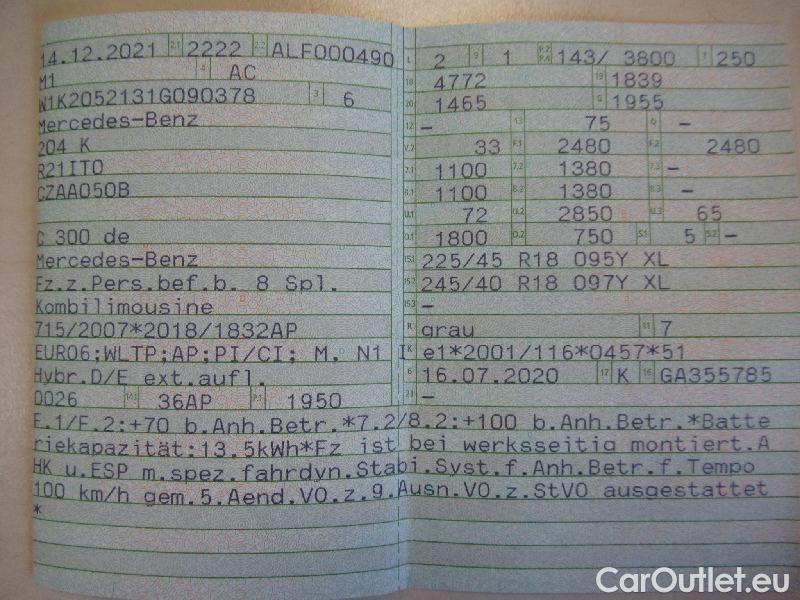 14.12.2021 2.1 2222 2.2 ALF000490
M1 4 AC
W1K2052131G090378 3 6
Mercedes-Benz
204 K
R21IT0
CZAA050B
C 300 de
Mercedes-Benz
Fz.z.Pers.bef.b. 8 Spl.
Kombilimousine
715/2007*2018/1832AP
EURO6;WLTP;AP;PI/CI; M, N1 I
Hybr.D/E ext.aufl.
0026 14.1 36AP P.1 1950
L 2 9 1 P.2 P.4 143/ 3800 T 250
18 4772 19 1839
20 1465 G 1955
12 – 13 75 Q –
V.7 33 F.1 2480 F.2 2480
7.1 1100 7.2 1380 7.3 –
8.1 1100 8.2 1380 8.3 –
U.1 72 U.2 2850 U.3 65
O.1 1800 O.2 750 S.1 5 S.2 –
15.1 225/45 R18 095Y XL
15.2 245/40 R18 097Y XL
15.3 –
R grau 11 7
K e1*2001/116*0457*51
6 16.07.2020 17 K 16 GA355785
21 –
F.1/F.2:+70 b.Anh.Betr.*7.2/8.2:+100 b.Anh.Betr.*Batte
riekapazität:13.5kWh*Fz ist bei werksseitig montiert.A
HK u.ESP m.spez.fahrdyn.Stabi.Syst.f.Anh.Betr.f.Tempo
100 km/h gem.5.Aend.VO.z.9.Ausn.VO.z.StVO ausgestattet
*
CarOutlet.eu